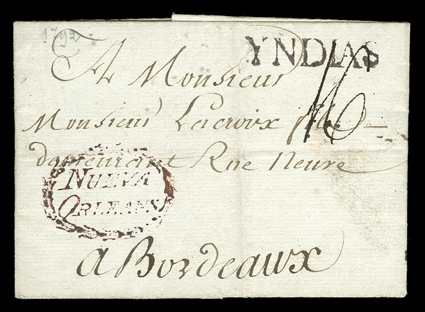 1792
YNDIAS
16
A Monsieur
Monsieur Lacroix fils
demeurant Rue Neuve
NUEVA
ORLEANS
a Bordeaux